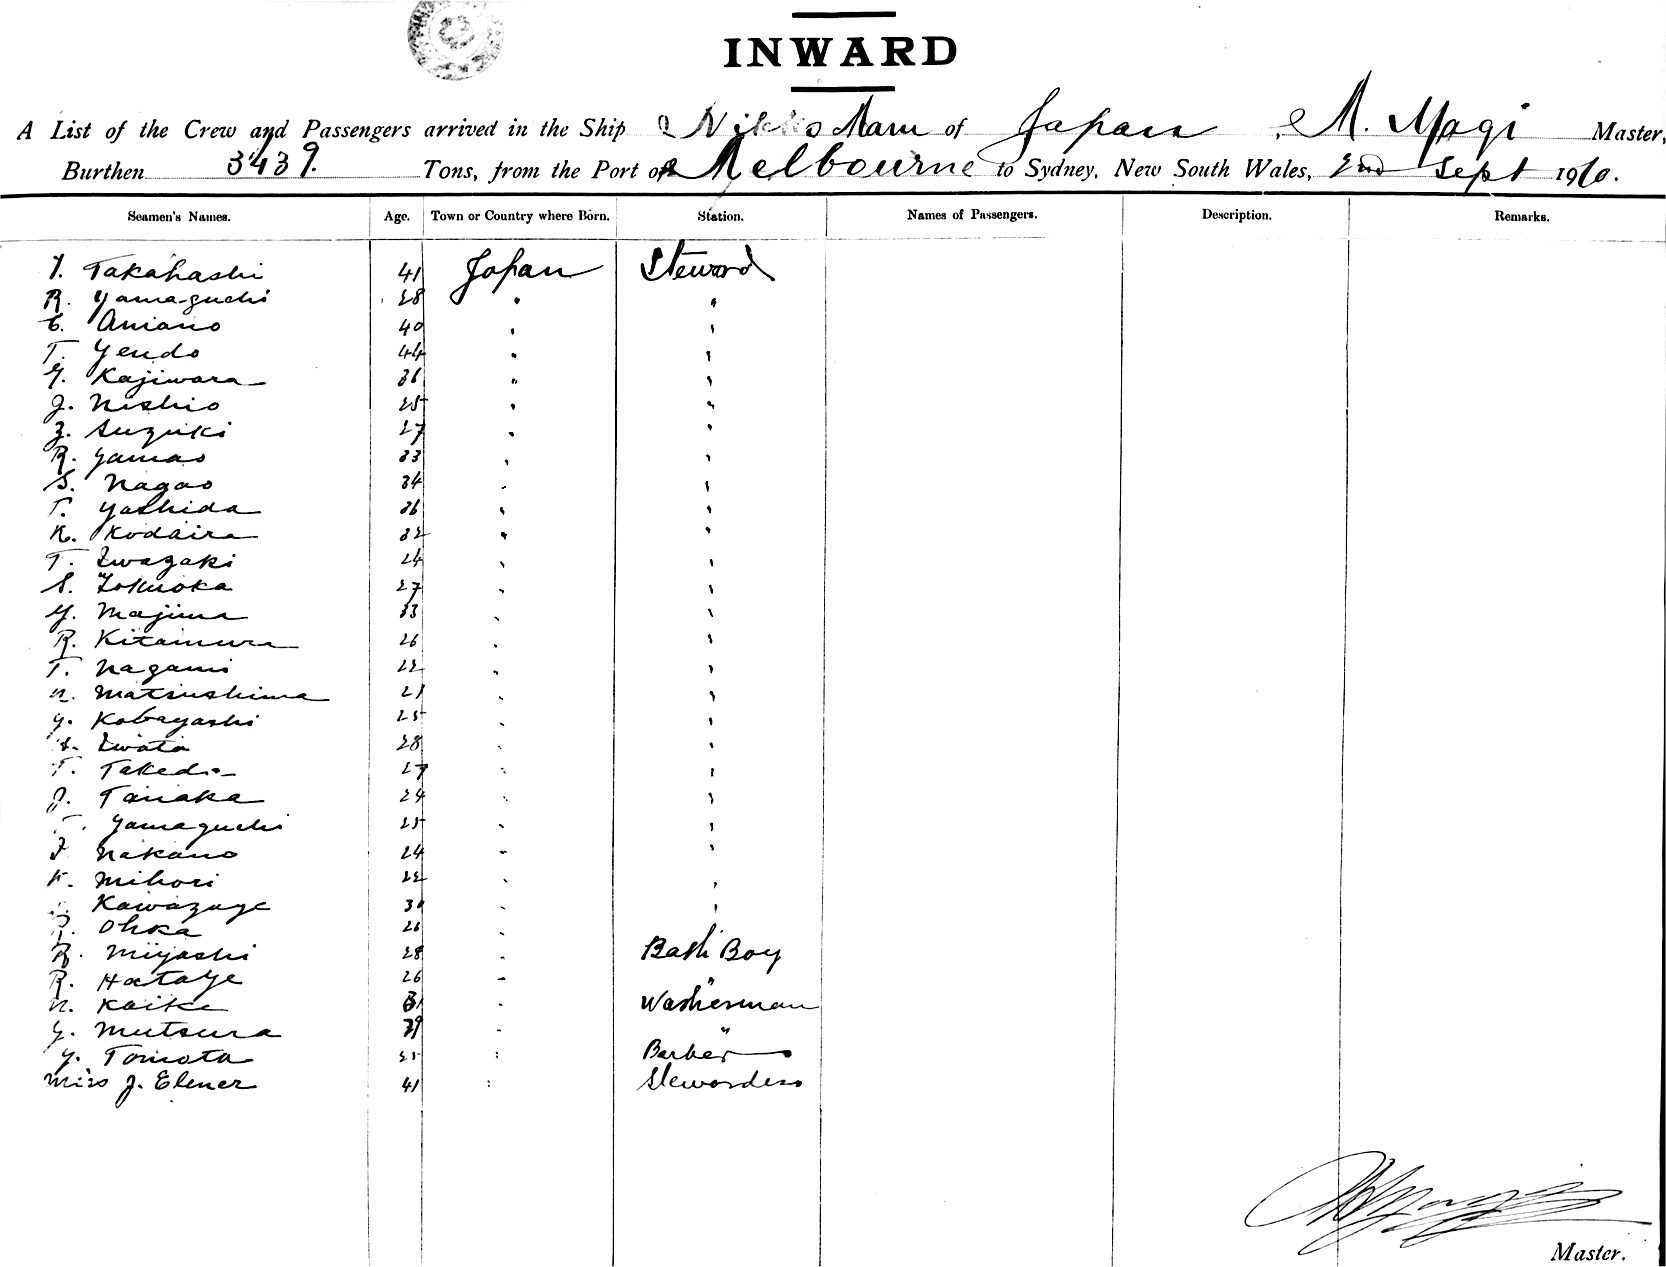 INWARD
A List of the Crew and Passengers arrived in the Ship Nikko Maru of Japan, M. Yagi Master,
Burthen 3439. Tons, from the Port of Melbourne to Sydney, New South Wales, 2nd Sept 1910.
Seamen's Names. Age. Town or Country where Born. Station. Names of Passengers. Description. Remarks.
Y. Takahashi 41 Japan Steward
R. Yamaguchi 28 " "
Amano 40 " "
T. Yendo 44 " "
Y. Kajiwara 36 " "
J. Nishio 25 " "
Z. Suzuki 27 " "
R. Yamao 33 " "
S. Nagao 34 " "
T. Yashida 36 " "
K. Kodaira 32 " "
T. Iwazaki 24 " "
S. Tokuoka 27 " "
Y. Majima 33 " "
R. Kitamura 26 " "
T. Nagami 22 " "
N. Matsushima 21 " "
Y. Kobayashi 25 " "
Iwata 28 " "
T. Takeda 27 " "
J. Tanaka 24 " "
Yamaguchi 25 " "
Nakano 24 " "
K. Mihori 22 " "
Kawazuye 30 " "
Ohka 26 " "
R. Miyashi 28 " Bath Boy
R. Hataye 26 " "
N. Kaike 31 " Washerman
Y. Mutsura 39 " "
Y. Tomota 25 " Barber
Miss J. Elener 41 " Stewardess
Master.